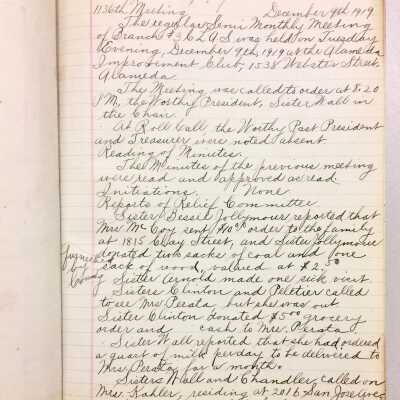 1136th Meeting December 9th 1919
The regular Semi Monthly Meeting
of Branch #3 C L A S was held on Tuesday
Evening, December 9th, 1919 at the Alameda
Improvement Club, 1538 Webster Street
Alameda.
The Meeting was called to order at 8:20
P.M, the Worthy President, Sister Wall in
the Chair.
At Roll Call, the Worthy Past President
and Treasurer were noted absent
Reading of Minutes.
The Minutes of the previous meeting
were read and approved as read.
Initiations. None
Reports of Relief Committee
Sister Dessie Jollymour reported that
Mrs McCoy sent $10.00 order to the family
at 1815 Clay Street, and Sister Jollymour
donated two sacks of coal and one
sack of wood, valued at $2.50
by
County
Sister Arnold made one sick visit.
Sisters Clinton and Peletier called
to see Mrs Perata but she was out
Sister Clinton donated $5.00 grocery
order and cash to Mrs. Perata
Sister Wall reported that she had ordered
a quart of milk per day to be delivered to
Mrs. Perata for a month.
Sisters Wall and Chandler, called on
Mrs. Kahler, residing at 2016 San Jose Ave